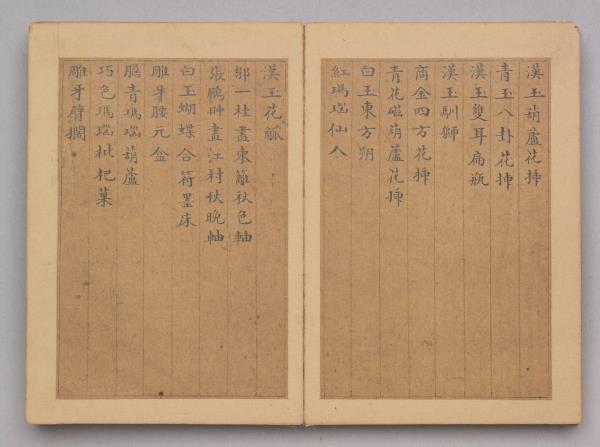 漢玉葫蘆花揷
青玉八卦花揷
漢玉雙耳扁瓶
漢玉馴獅
商金四方花揷
青花磁葫蘆花揷
白玉東方朔
紅瑪瑙仙人
漢玉花觚
鄒一桂畫東籬秋色軸
張鵬翀畫江村秋晚軸
白玉蝴蝶合符墨床
雕牙腰元盒
瞻青瑪瑙葫蘆
巧色瑪瑙枇杷菓
雕牙臂擱